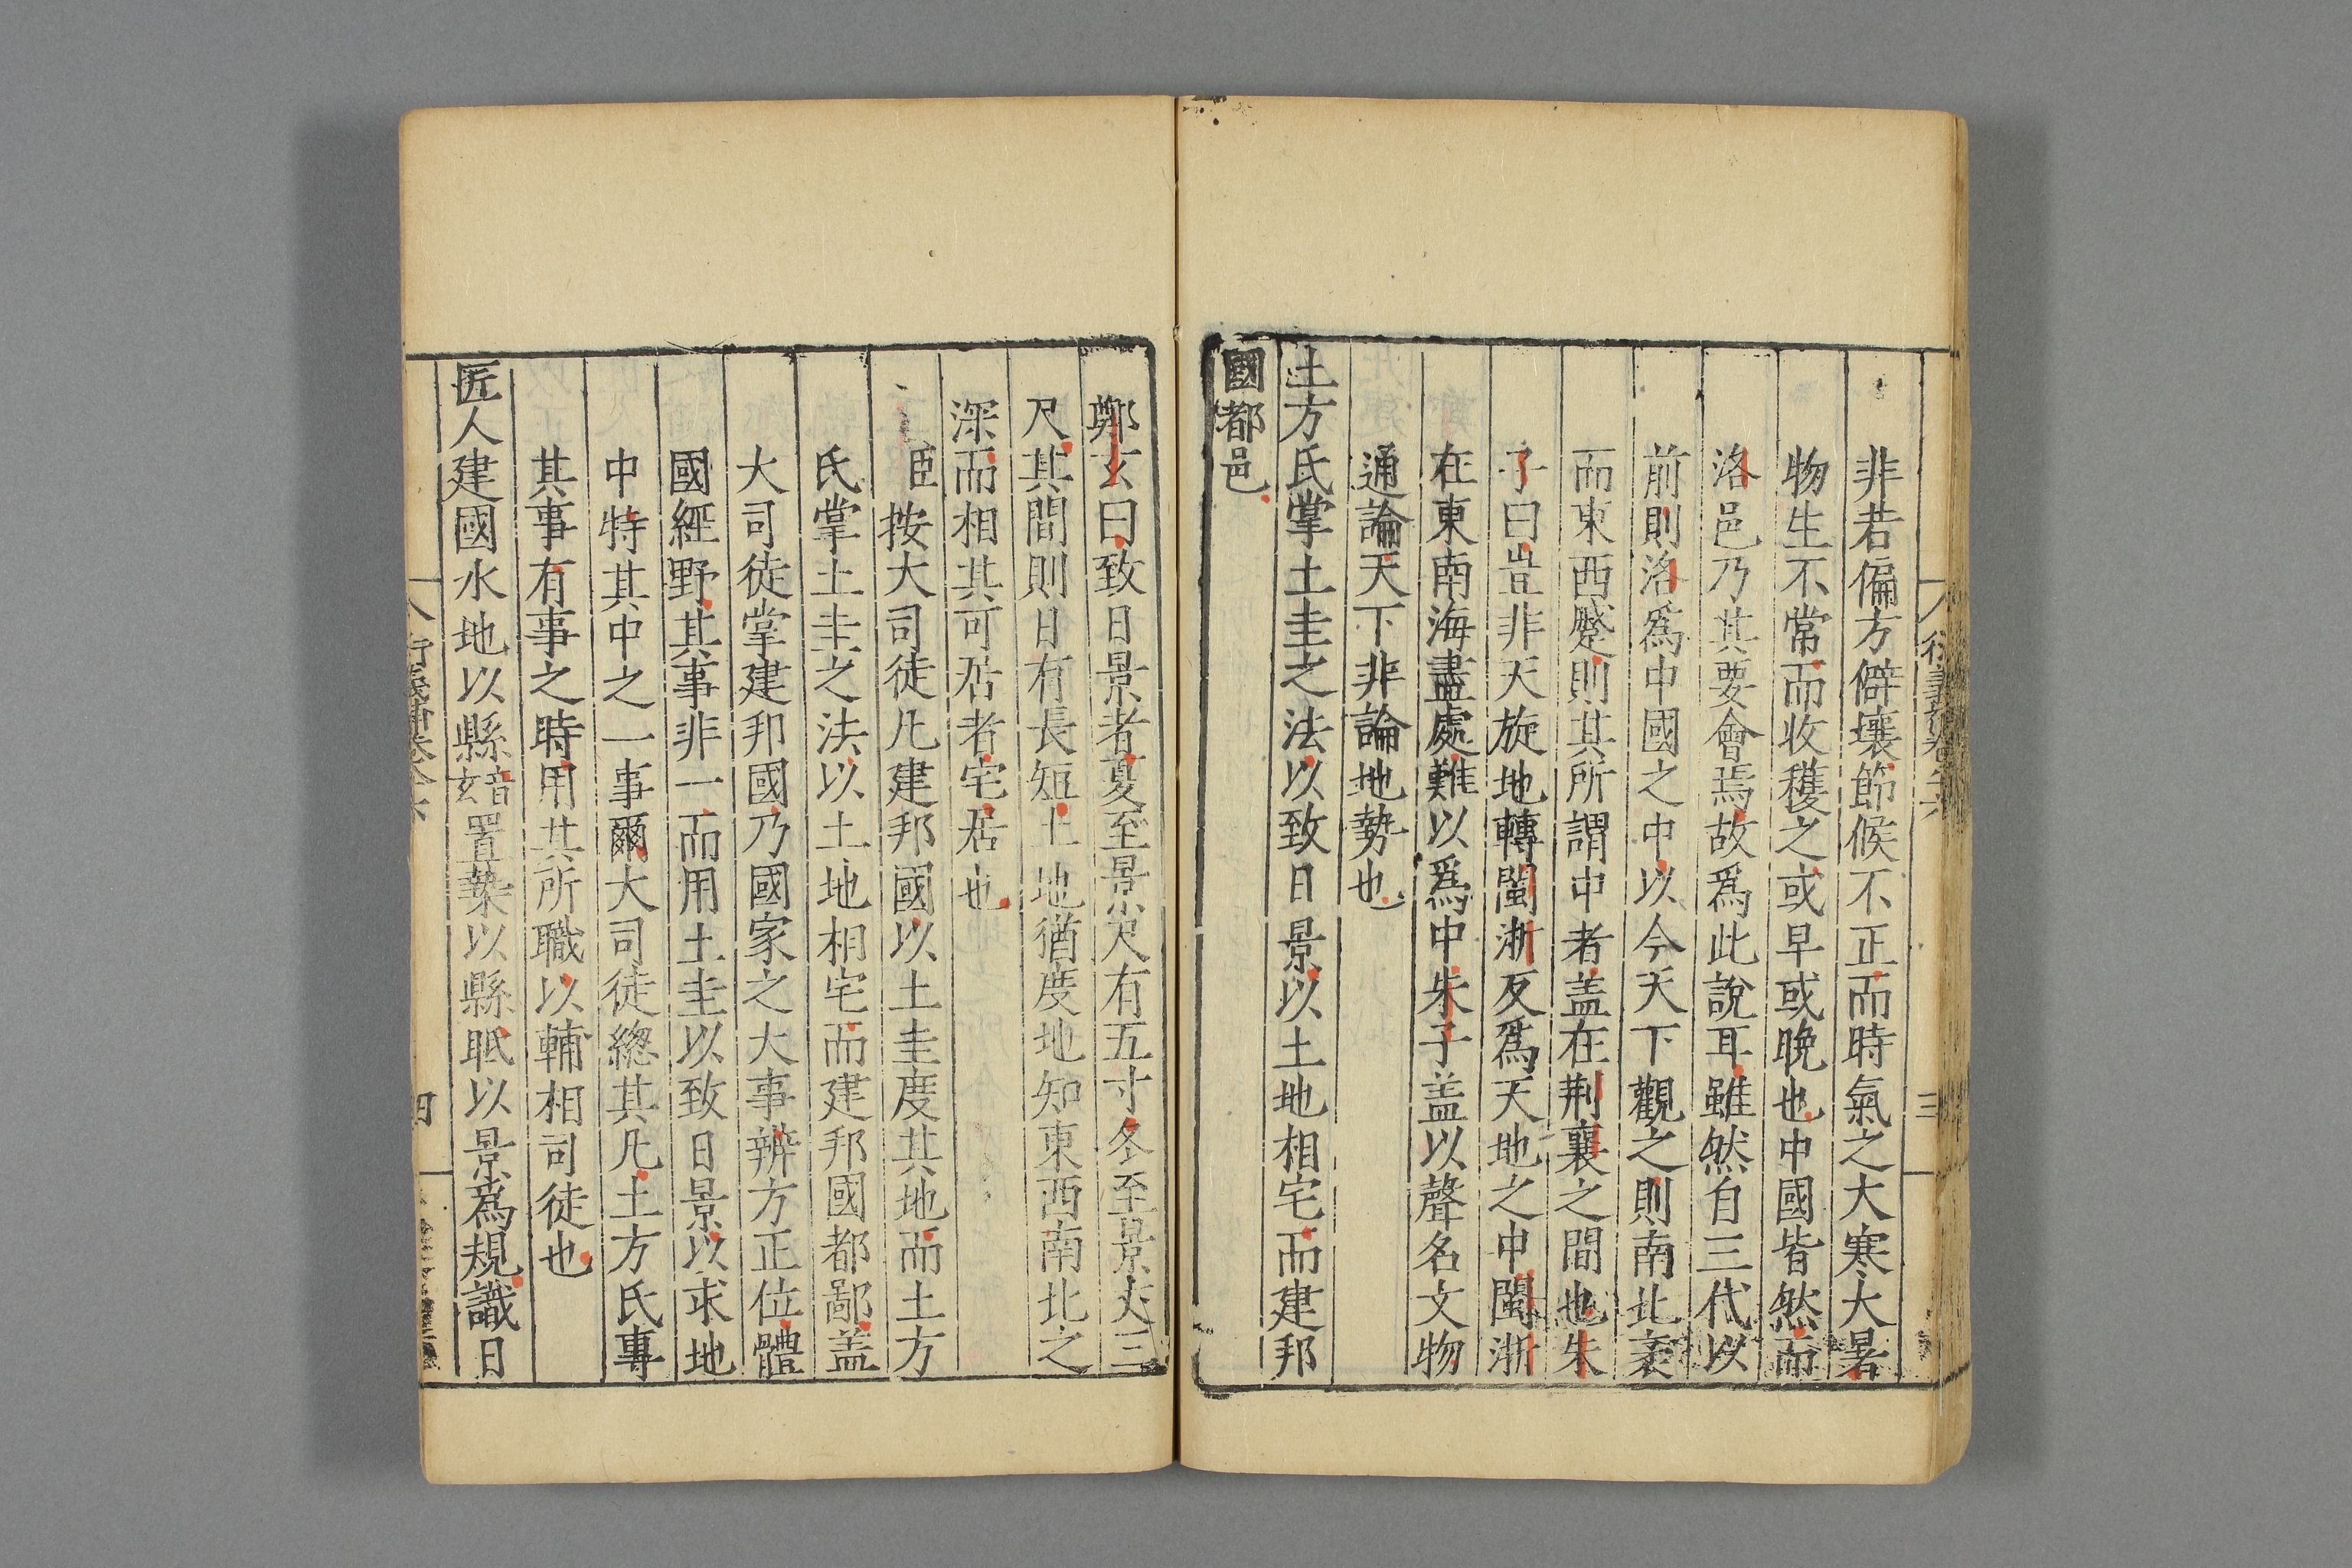 非若偏方僻壤節候不正而時氣之大寒大暑
物生不常而收穫之或早或晚也中國皆然而
洛邑乃其要會焉故爲此說耳雖然自三代以
前則洛爲中國之中以今天下觀之則南北袤
而東西蹙則其所謂中者盖在荆襄之間也朱
子曰豈非天旋地轉閩浙反爲天地之中閩浙
在東南海盡處難以爲中朱子盖以聲名文物
通論天下非論地勢也
土方氏掌土圭之法以致日景以土地相宅而建邦
國都邑
鄭玄曰致日景者夏至景尺有五寸冬至景丈三
尺其間則日有長短土地猶度地知東西南北之
深而相其可居者宅居也
臣按大司徒凡建邦國以土圭度其地而土方
氏掌土圭之法以土地相宅而建邦國都鄙盖
大司徒掌建邦國乃國家之大事辨方正位體
國經野其事非一而用土圭以致日景以求地
中特其中之一事爾大司徒總其凡土方氏專
其事有事之時用其所職以輔相司徒也
匠人建國水地以縣音玄置槷以縣眡以景爲規識日